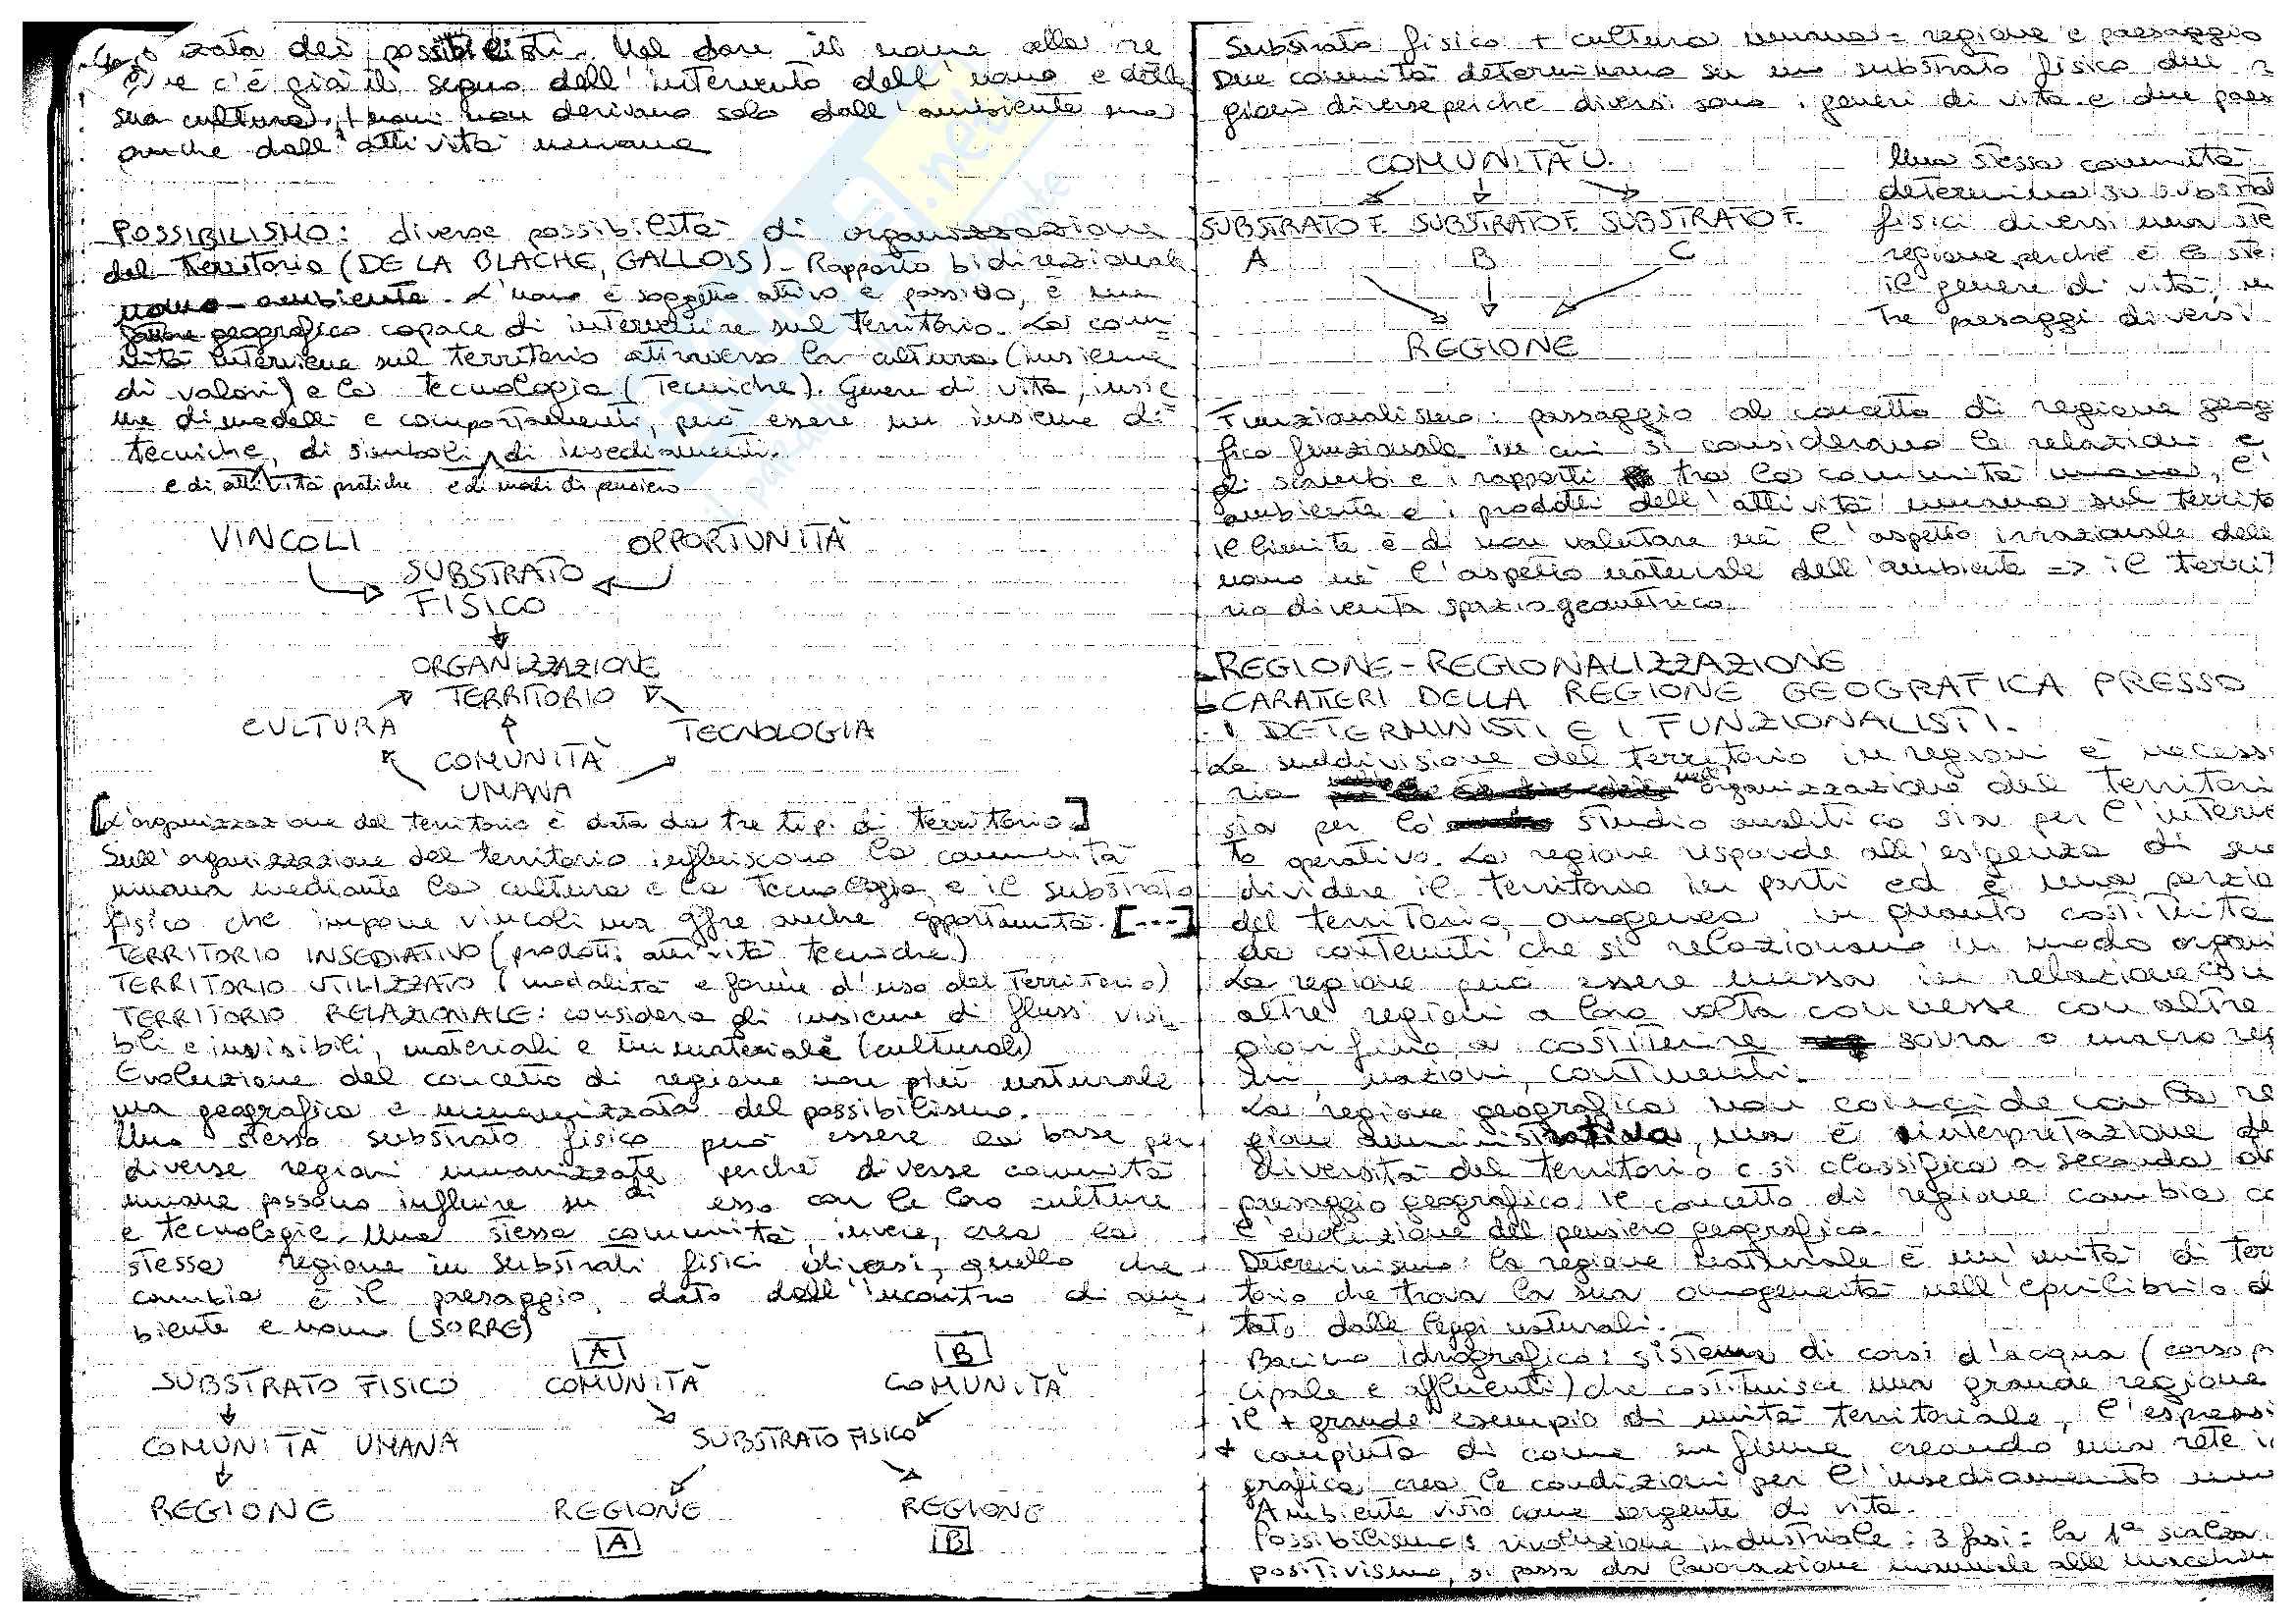 zata dei possibilisti. Nel dare il nome alla re
c'è già il segno dell'intervento dell'uomo e della
sua cultura, i nomi non derivano solo dall'ambiente ma
anche dall'attività umana
POSSIBILISMO: diverse possibilità di organizzazione
del territorio (DE LA BLACHE, GALLOIS). Rapporto bidirezionale
uomo-ambiente. L'uomo è soggetto attivo e passivo, è un
fattore geografico capace di intervenire sul territorio. La comu=
nità interviene sul territorio attraverso la cultura (insieme
di valori) e la tecnologia (tecniche). Genere di vita, insie
me di modelli e comportamenti, può essere un insieme di
tecniche, di simboli, di insediamenti.
e di attività pratiche e di modi di pensiero
VINCOLI OPPORTUNITÀ
SUBSTRATO
FISICO
ORGANIZZAZIONE
TERRITORIO
CULTURA TECNOLOGIA
COMUNITÀ
UMANA
[L'organizzazione del territorio è data da tre tipi di territorio]
Sull'organizzazione del territorio influiscono la comunità
umana mediante la cultura e la tecnologia, e il substrato
fisico che impone vincoli ma offre anche opportunità. [---]
TERRITORIO INSEDIATIVO (prodotti attività tecniche)
TERRITORIO UTILIZZATO (modalità e forme d'uso del territorio)
TERRITORIO RELAZIONALE: considera gli insieme di flussi visi
bili e invisibili, materiali e immateriale (culturali)
Evoluzione del concetto di regione non più naturale
ma geografica e umanizzata del possibilismo.
Uno stesso substrato fisico può essere la base per
diverse regioni umanizzate perché diverse comunità
umane possono influire su di esso con le loro culture
e tecnologie. Una stessa comunità, invece, crea la
stessa regione in substrati fisici diversi, quello che
cambia è il paesaggio, dato dall'incontro di am
biente e uomo (SORRE)
A B
SUBSTRATO FISICO COMUNITÀ COMUNITÀ
COMUNITÀ UMANA SUBSTRATO FISICO
REGIONE REGIONE REGIONE
A B
Substrato fisico + cultura umana = regione e paesaggio
Due comunità determinano su uno substrato fisico due
gioni diverse perché diversi sono i generi di vita e due paes
COMUNITÀ U.
SUBSTRATO F. SUBSTRATO F. SUBSTRATO F.
A B C
REGIONE
Una stessa comunità
determina su substrat
fisici diversi una ste
regione perché è lo ste
il genere di vita, in
tre paesaggi diversi
Funzionalismo: passaggio al concetto di regione geog
fica funzionale in cui si considerano le relazioni e
gli scambi e i rapporti tra la comunità umana, l'
ambiente e i prodotti dell'attività umana sul territo
il limite è di non valutare né l'aspetto irrazionale dell
uomo né l'aspetto materiale dell'ambiente => il territ
rio diventa spazio geometrico.
REGIONE-REGIONALIZZAZIONE
CARATTERI DELLA REGIONE GEOGRAFICA PRESSO
I DETERMINISTI E I FUNZIONALISTI.
La suddivisione del territorio in regioni è necess
ria nell'organizzazione del territori
sia per lo studio analitico sia per l'interve
to operativo. La regione risponde all'esigenza di su
dividere il territorio in parti ed è una porzio
del territorio, omogenea in quanto costituita
da contenuti che si relazionano in modo organi
La regione può essere messa in relazione con
altre regioni a loro volta connesse con altre
gioni fino a costituire sovra o macro reg
ni, nazioni, continenti.
La regione geografica non coincide con la re
gione amministrativa, ma è interpretazione de
diversità del territorio e si classifica a seconda
paesaggio geografico. Il concetto di regione cambia co
l'evoluzione del pensiero geografico.
Determinismo: la regione naturale è un'unità di ter
torio che trova la sua omogeneità nell'equilibrio d
tato dalle leggi naturali.
Bacino idrografico: sistema di corsi d'acqua (corso p
cipale e affluenti) che costituisce una grande regione
il + grande esempio di unità territoriale, l'espressi
+ compiuta di come un fiume creando una rete i
grafica crea le condizioni per l'insediamento um
Ambiente visto come sorgente di vita.
Possibilismo: rivoluzione industriale: 3 fasi: la 1ª
positivismo, si passa da lavorazione manuale alle macchin